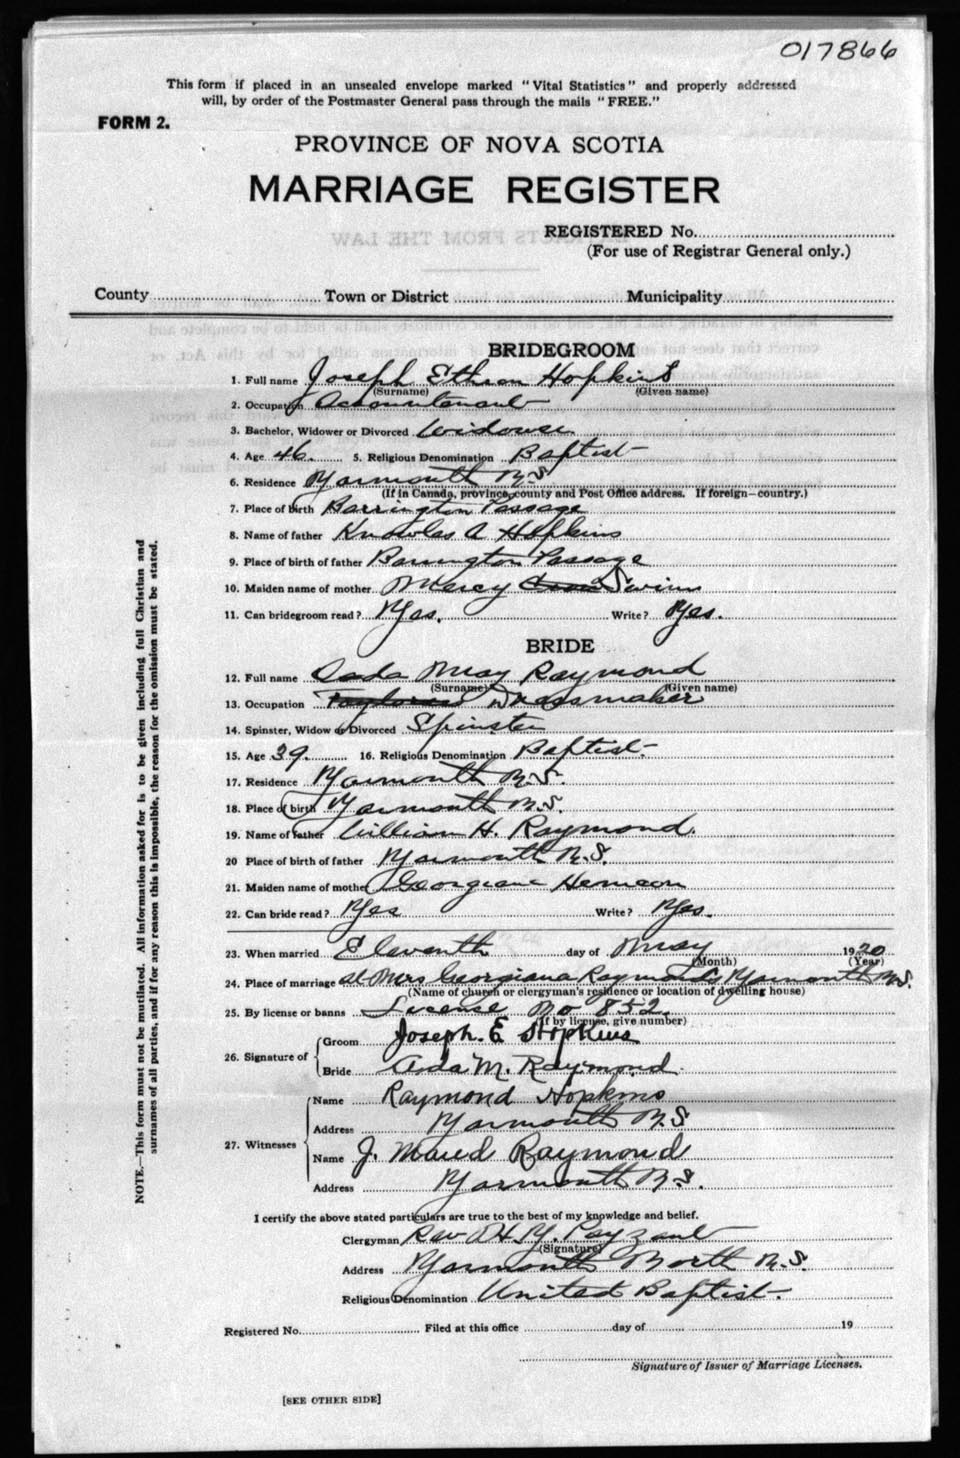 017866
This form if placed in an unsealed envelope marked "Vital Statistics" and properly addressed
will, by order of the Postmaster General pass through the mails "FREE."
FORM 2.
PROVINCE OF NOVA SCOTIA
MARRIAGE REGISTER
REGISTERED No.
(For use of Registrar General only.)
County Town or District Municipality
BRIDEGROOM
1. Full name Joseph Hopkins
(Surname) (Given name)
2. Occupation Accountant
3. Bachelor, Widower or Divorced Widower
4. Age 46. 5. Religious Denomination Baptist
6. Residence Yarmouth N.S.
(If in Canada, province, county and Post Office address. If foreign—country.)
7. Place of birth Barrington Passage
8. Name of father Knowles A Hopkins
9. Place of birth of father Barrington Passage
10. Maiden name of mother Mercy Swim
11. Can bridegroom read? Yes. Write? Yes.
BRIDE
12. Full name May Raymond
(Surname) (Given name)
13. Occupation Dressmaker
14. Spinster, Widow or Divorced Spinster
15. Age 39. 16. Religious Denomination Baptist
17. Residence Yarmouth N.S.
18. Place of birth Yarmouth N.S.
19. Name of father William H. Raymond.
20 Place of birth of father Yarmouth N.S.
21. Maiden name of mother Georgiana
22. Can bride read? Yes Write? Yes.
23. When married Eleventh day of May 1920
(Month) (Year)
24. Place of marriage at Mrs Georgiana Raymonds Yarmouth N.S.
(Name of church or clergyman's residence or location of dwelling house)
25. By license or banns License No 852.
(If by license, give number)
26. Signature of Groom Joseph. E Hopkins
Bride M. Raymond
27. Witnesses
Name Raymond Hopkins
Address Yarmouth N.S
Name J. Maud Raymond
Address Yarmouth N.S.
I certify the above stated particulars are true to the best of my knowledge and belief.
Clergyman Rev H. Y. Payzant
(Signature)
Address Yarmouth North N.S.
Religious Denomination United Baptist.
Registered No. Filed at this office day of 19
Signature of Issuer of Marriage Licenses.
[SEE OTHER SIDE]
NOTE.—This form must not be mutilated. All information asked for is to be given including full Christian and
surnames of all parties, and if for any reason this is impossible, the reason for the omission must be stated.